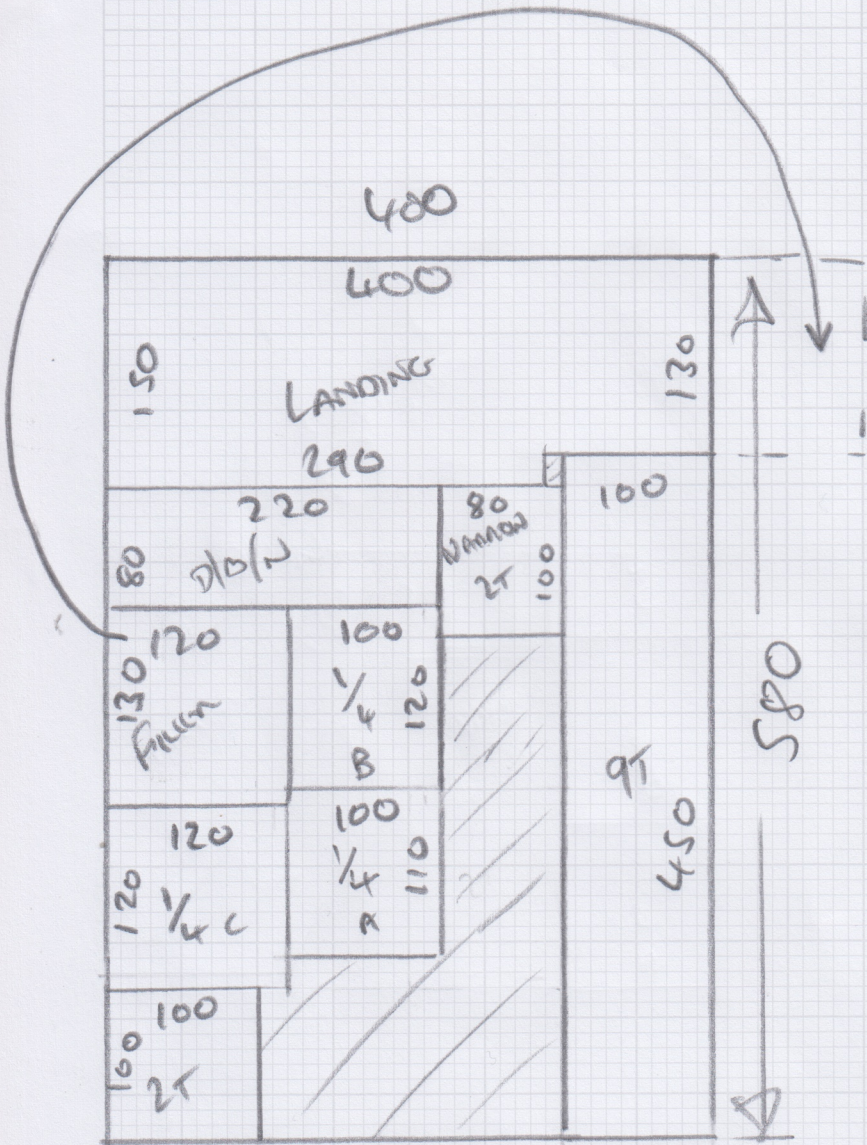 400
400
150
LANDING
130
290
220
80
D/B/N
80
NARROW
2T
100
100
120
130
100
1/4
120
B
9T
450
580
120
120
1/4 C
100
1/4
110
A
100
100
2T